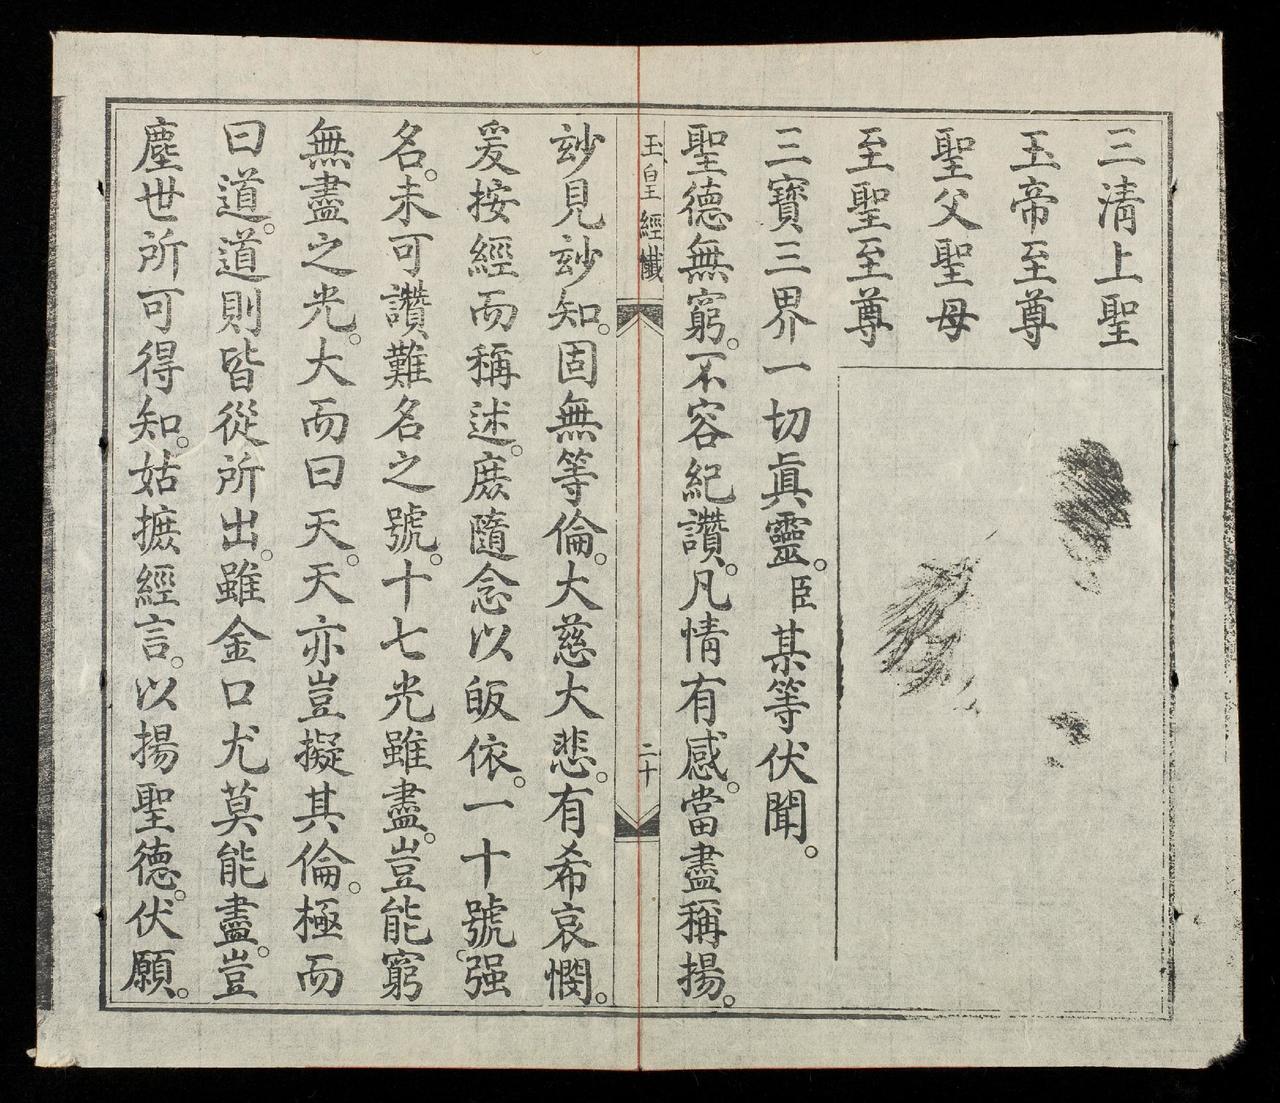 三淸上聖
玉帝至尊
聖父聖母
至聖至尊
三寳三界一切眞靈。臣某等伏聞。
聖德無窮。不容紀讚。凡情有感。當盡稱揚。
玉皇經懺
二十
玅見玅知。固無等倫。大慈大悲。有希哀憫。
爰按經而稱述。庻隨念以皈依。一十號。强
名。未可讚難名之號。十七光雖盡。豈能窮
無盡之光。大而曰天。天亦豈擬其倫。極而
曰道。道則皆從所出。雖金口尤莫能盡。豈
塵世所可得知。姑摭經言。以揚聖德。伏願。